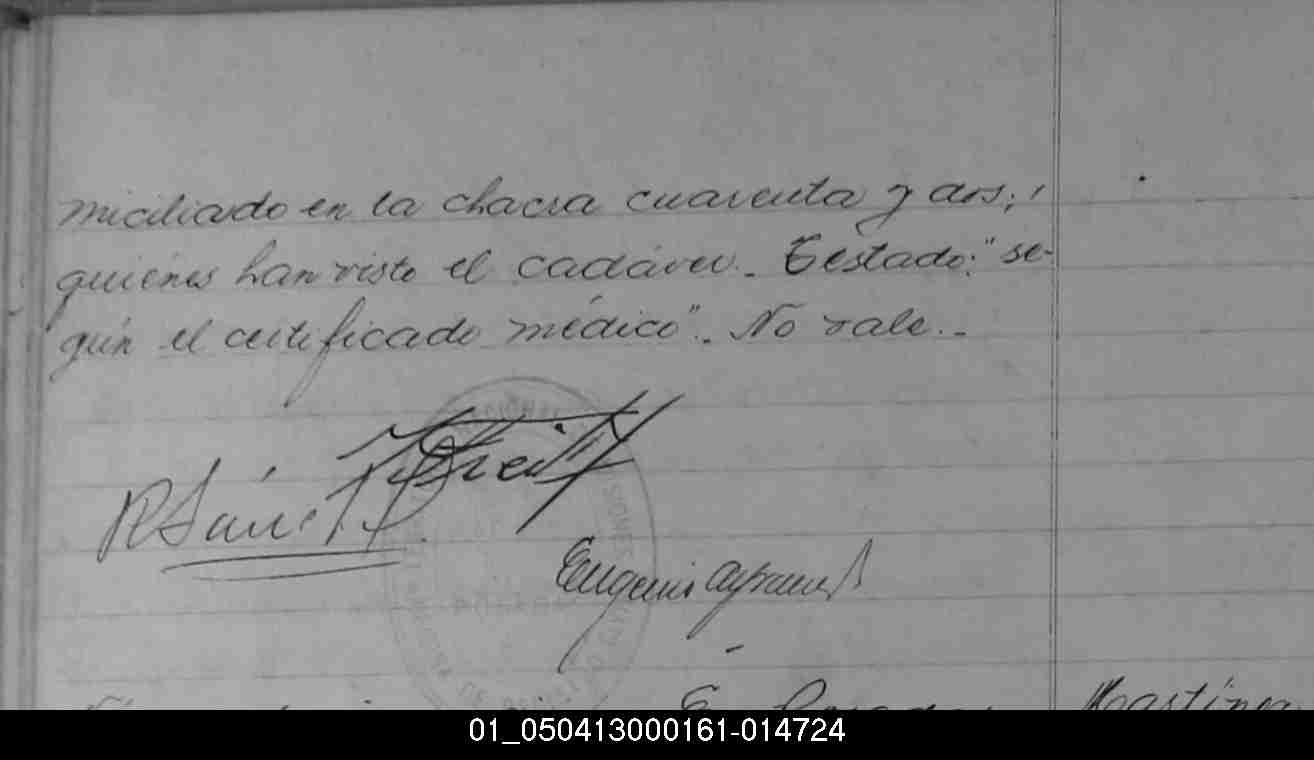 miciliado en la chacra cuarenta y dos;
quiénes han visto el cadáver.- Testado: "se-
gún el certificado médico".- No vale.-
R Sánc
Eugenio
Posadas
Martínez
01_050413000161-014724